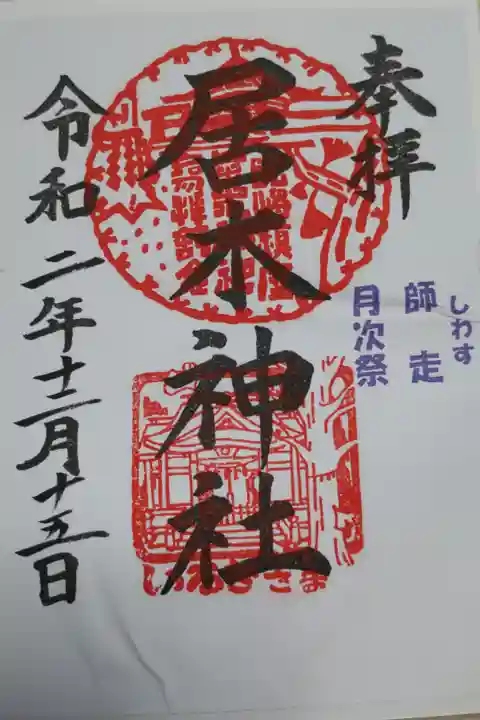 奉拝
師走
しわす
月次祭
居木神社
令和二年十二月十五日